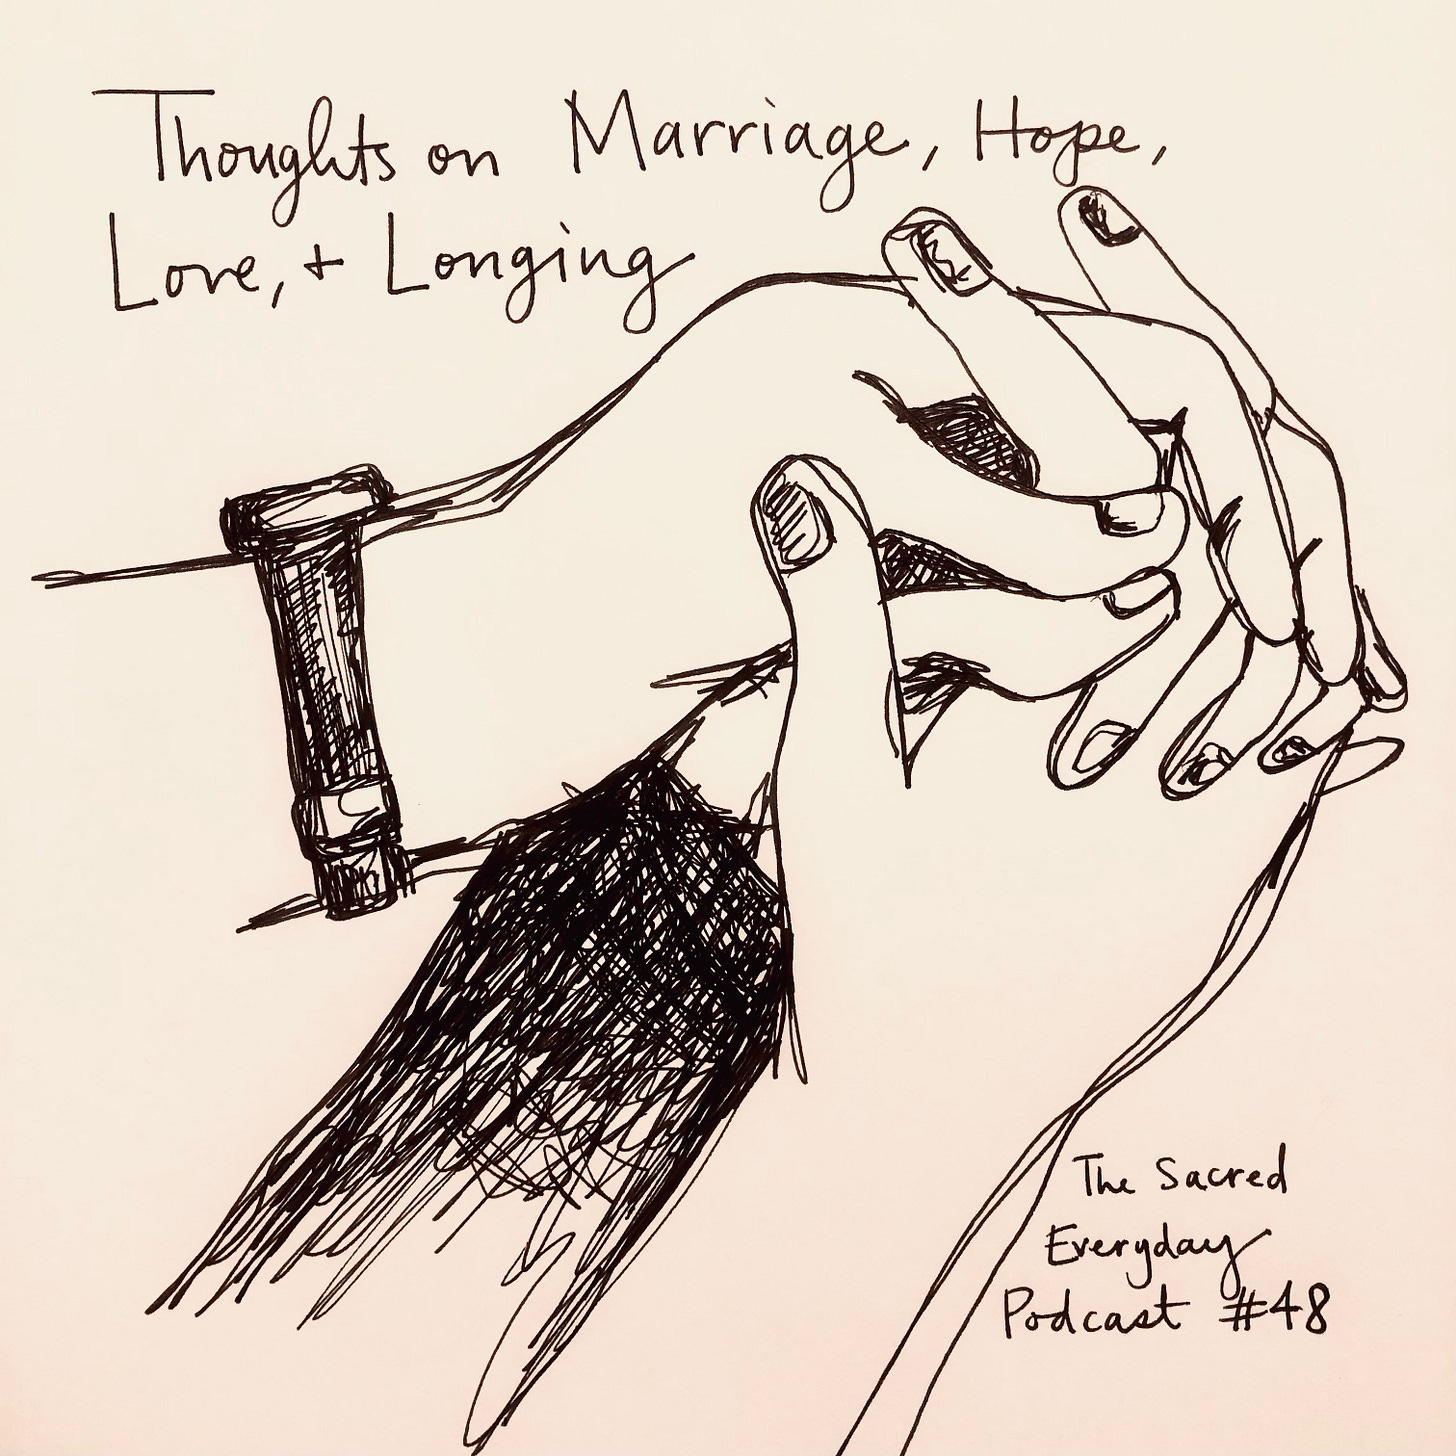 Thoughts on Marriage, Hope,
Love, + Longing
The Sacred
Everyday
Podcast #48